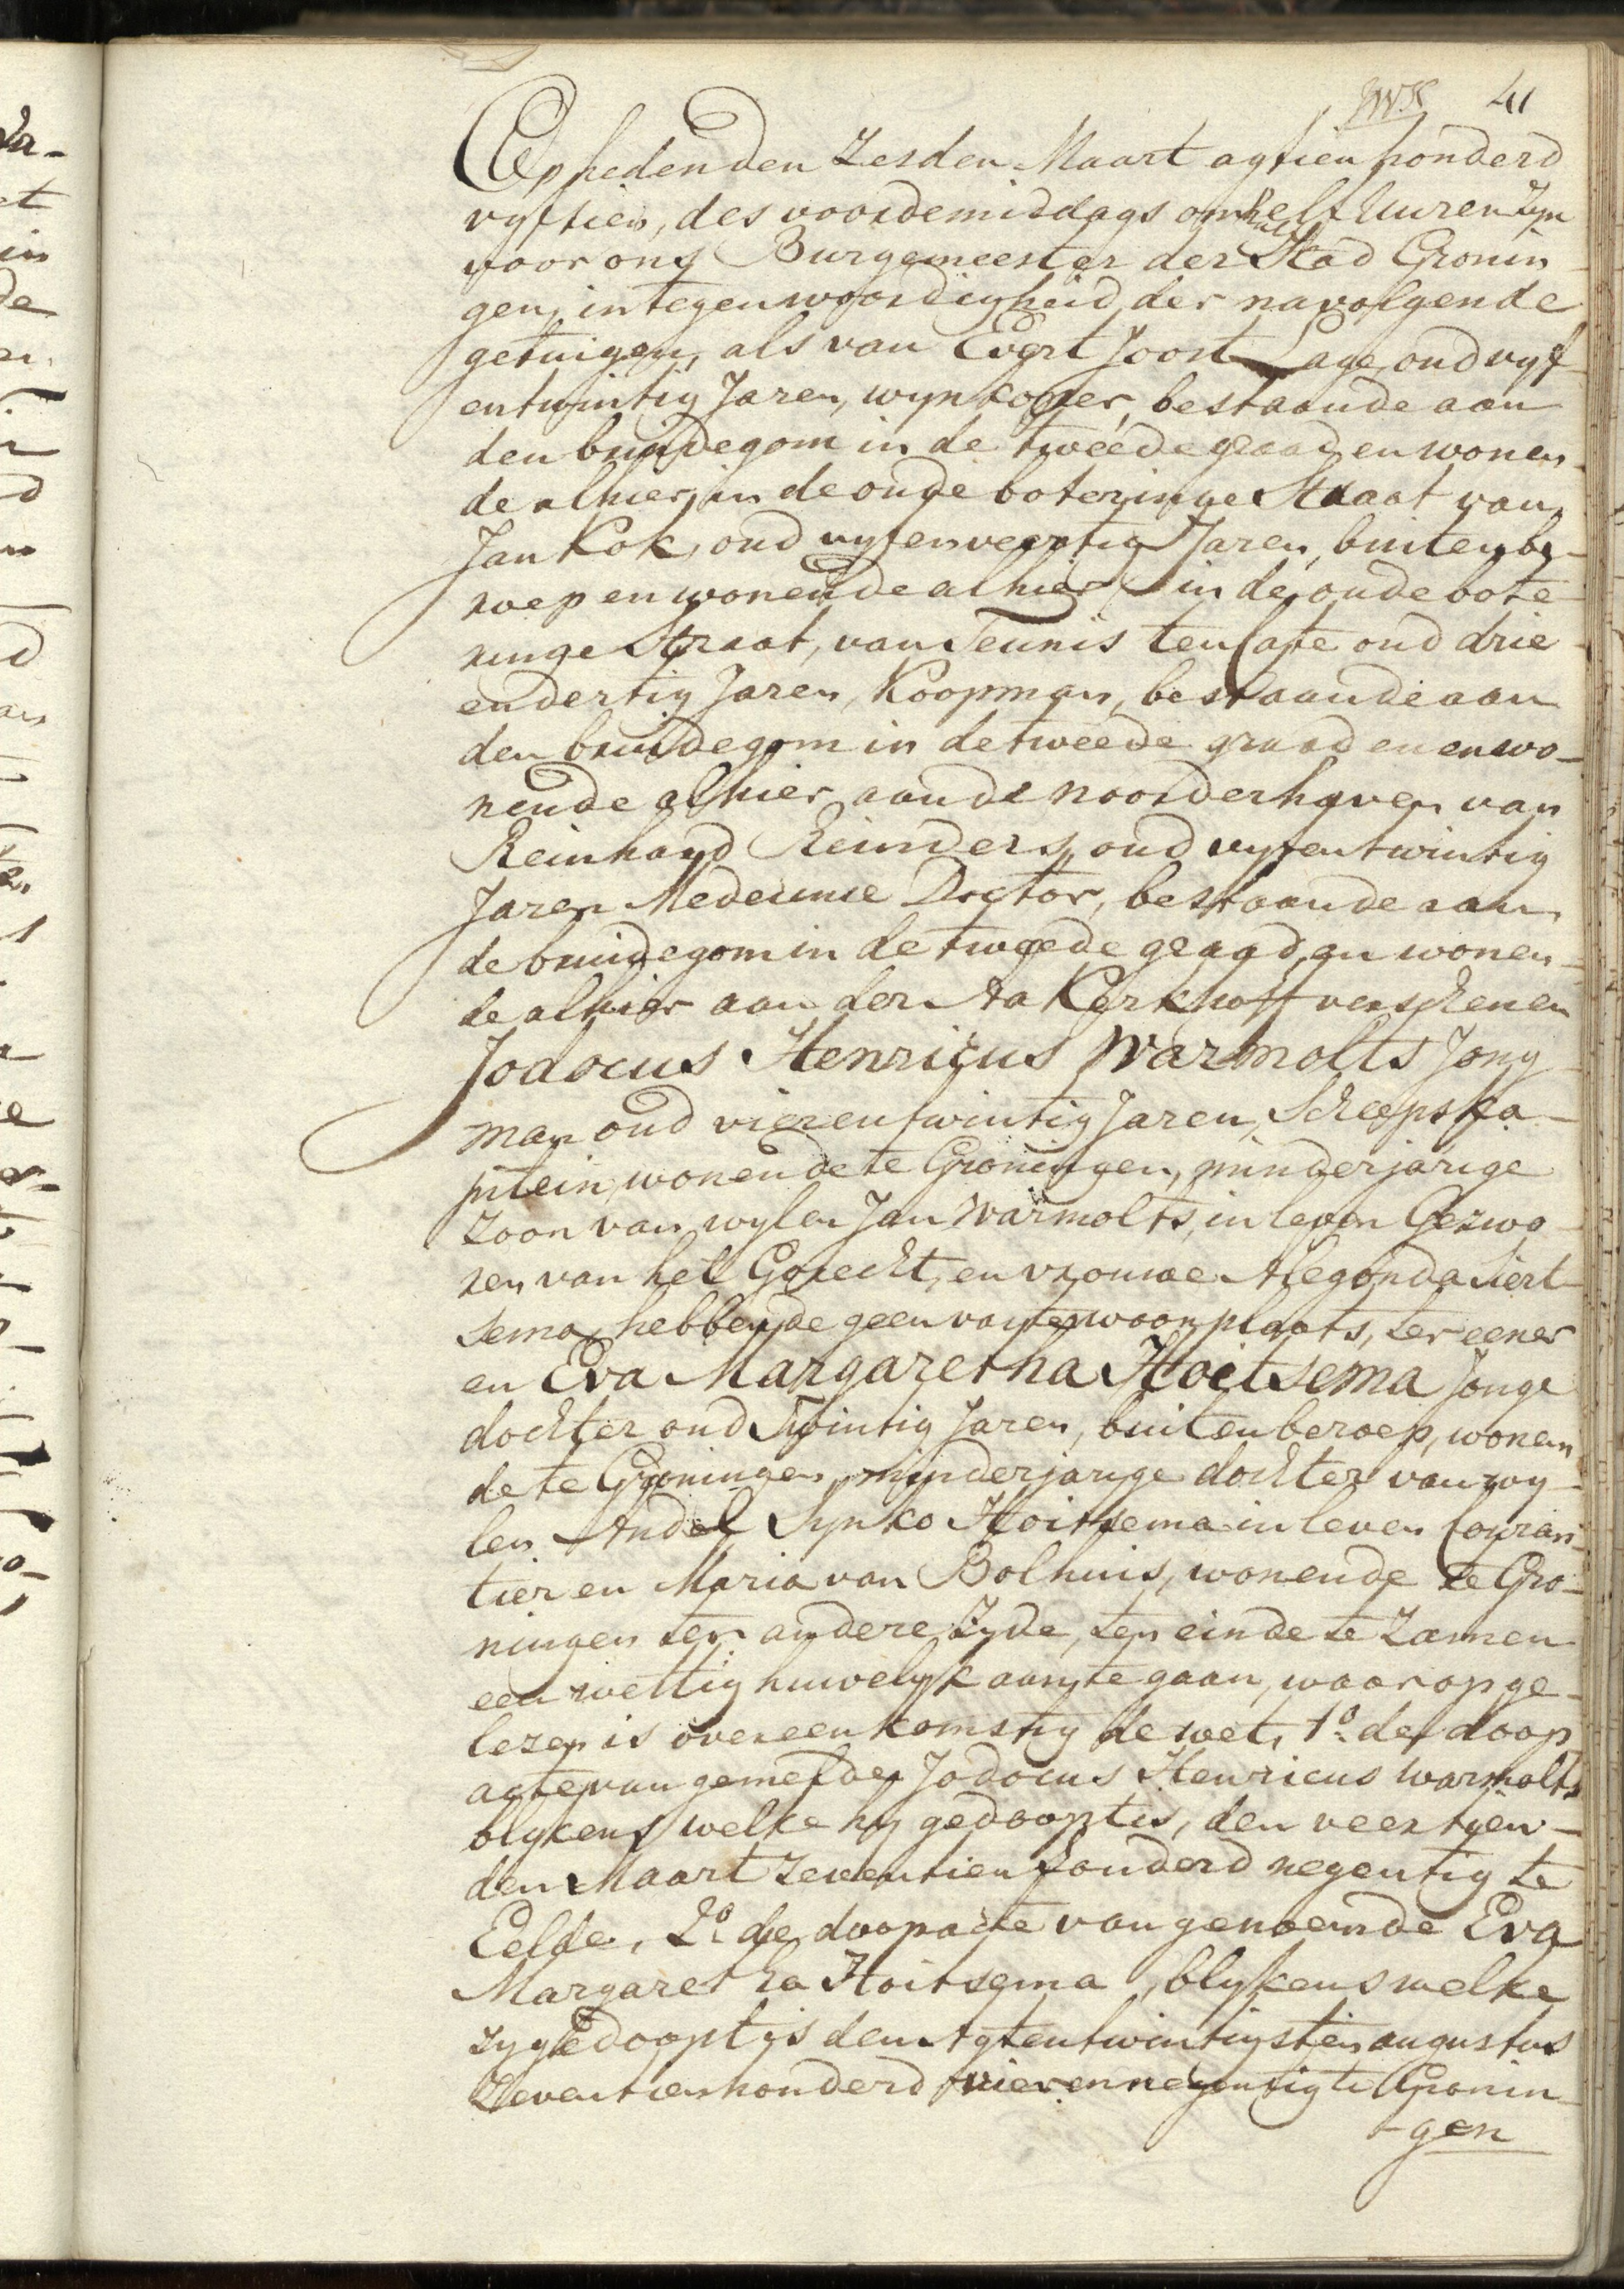 41
Op heden den Zesden Maart agtien honderd
vyftien, des voordemiddags om half elf Uuren Zyn
voor ons Burgemeester der Stad Gronin-
gen, in tegenwoordigheid der navolgende
getuigen, als van Evert Joost Lage, oud vyf
entwintig Jaren, wynkoper, bestaande aan
den bruidegom in de tweede graad en wonen-
de alhier, in de oude boteringe Straat van
Jan Kok, oud vyfenveertig Jaren, buiten be-
roep en wonende alhier in de oude bote-
ringe Straat, van Teunis ten Cate oud drie
endertig Jaren, Koopman, bestaande aan
den bruidegom in de tweede graad en enwo-
nende alhier aan de noorderhaven van
Reinhard Reinders, oud vyfentwintig
Jaren Medecinae Doctor, bestaande aan
de bruidegom in de tweede graad, en wonen-
de alhier aan der Aa Kerkhoff verschenen
Jodocus Henricus Warmolts Jong
man oud vierentwintig Jaren, Scheepska-
pitein, wonende te Groningen, minderjarige
Zoon van wylen Jan Warmolts, in leven Gezwo-
ren van het Gorecht, en vrouwe Alegonda Siert
sema, hebbende geen vaste woonplaats, ter eener
en Eva Margaretha Hoitsema Jonge
dochter oud Twintig Jaren, buiten beroep, wonen
de te Groningen, minderjarige dochter van wy-
len Andel Synko Hoitsema in leven Couran-
tier en Maria van Bolhuis, wonende te Gro-
ningen ter andere Zyde, ten einde te Zamen
een wettig huwelyk aan te gaan, waar op ge-
lezen is overeenkomstig de wet, 1o. de doop
acte van gemelde Jodocus Henricus Warmolts
blykens welke hy gedoopt is, den veertien-
den Maart Zeventien honderd negentig te
Eelde, 2o. de doopacte van genoemde Eva
Margaretha Hoitsema, blykens welke
zy gedoopt is den Agtentwintigsten augustus
Zeventienhonderd vierennegentig te Gronin-
-gen